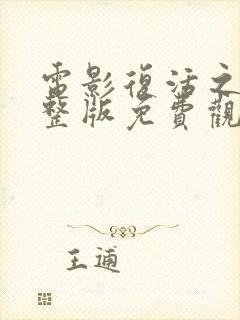 電影復活之
整版免費觀
王逋